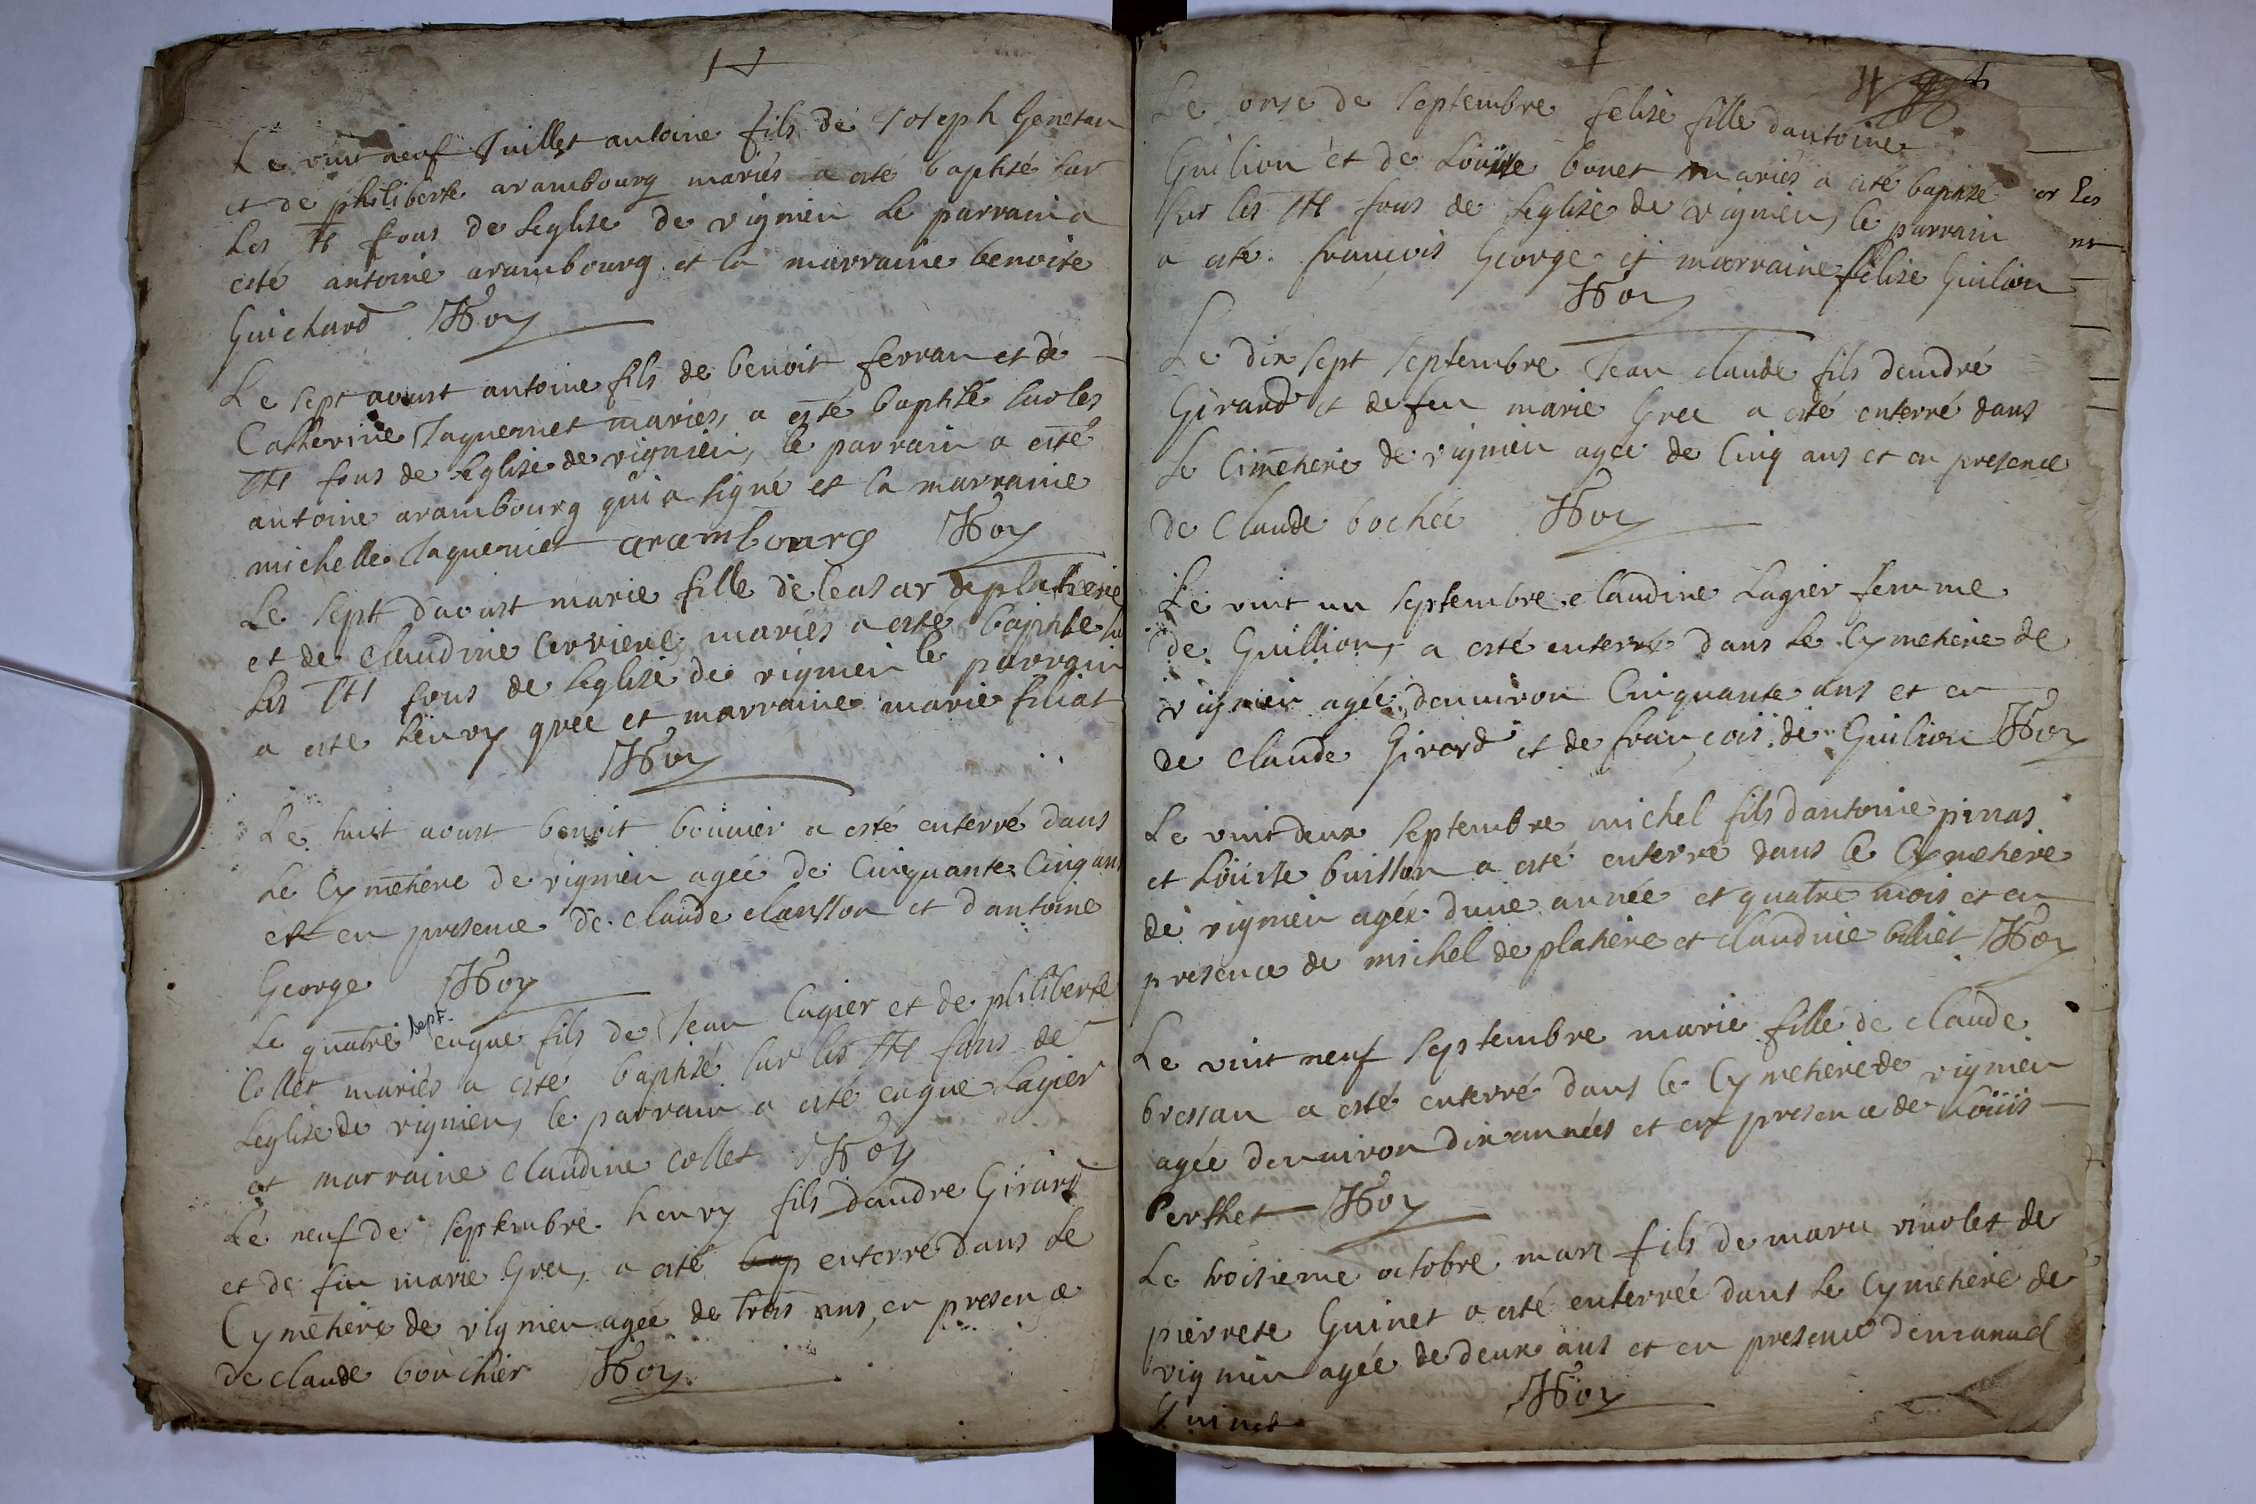 Le vint neuf Juillet antoine fils de Joseph Genetan
et de philiberte arambourg mariés a esté baptisé sur
Les fons de Leglise de vignieu Le parrain a
esté antoine arambourg et la marraine benoite
Guichard Roy
Le sept aoust antoine fils de benoit ferran et de
Catherine Jaquemet mariés, a esté baptisé sur les
fons de Leglise de vignieu, le parrain a esté
antoine arambourg qui a signé et la marraine
michelle Jaquemet arambourg Roy
Le sept daoust marie fille de leasar deplatiere
et de claudine Cerviere mariés a esté baptisé su
Les fons de Leglise de vignieu le parrain
a esté henry gree et marraine marie filiat
Roy
Le huit aoust benoit bouvier a esté enterré dans
Le Cymetiere de vignieu agée de Cinquante Cinq ans
et en presence de claude clausson et dantoine
George Roy
Le quatre sept. eugue fils de Jean Lagier et de philiberte
Collet mariés a esté baptisé sur les fons de
Leglise de vignieu, le parrain a esté eugue Lagier
et marraine claudine collet Roy
Le neuf de septembre henry fils dandre Girard
et de feu marie Gree, a esté bap enterré dans Le
Cymetiere de vignieu agée de trois ans, en presence
de claude bouchier Roy
Le onse de septembre felise fille dantoine
Guilion et de Louise bonet mariés a esté baptisé
sur les fons de Leglise de vignieu, le parrain
a esté françois George et marraine felise Guilion
Roy
Le dix sept septembre Jean claude fils dandré
Girard et de feu marie Gree a esté enterré dans
Le Cimetiere de vignieu agée de Cinq ans et en presence
de Claude bochée Roy
Le vint un septembre claudine Lagier femme
de Guillion, a esté enterré dans Le Cymetiere de
vignieu agée denviron Cinquante ans et en
de claude Girard et de françois de Guilion Roy
Le vint deux septembre michel fils dantoine pinas
et Louise buisson a esté enterré dans le Cymetiere
de vignieu agée dune année et quatre mois et en
presence de michel de platiere et claudine billiet Roy
Le vint neuf septembre marie fille de claude
bressan a esté enterré dans le Cymetiere de vignieu
agée denviron dix années et en presence de Louis
berthet Roy
Le troisieme octobre marc fils de marc vinolet de
pierrete Guinet a esté enterrée dans Le Cymetiere de
vignieu agée de deux ans et en presence demanuel
Guinet Roy